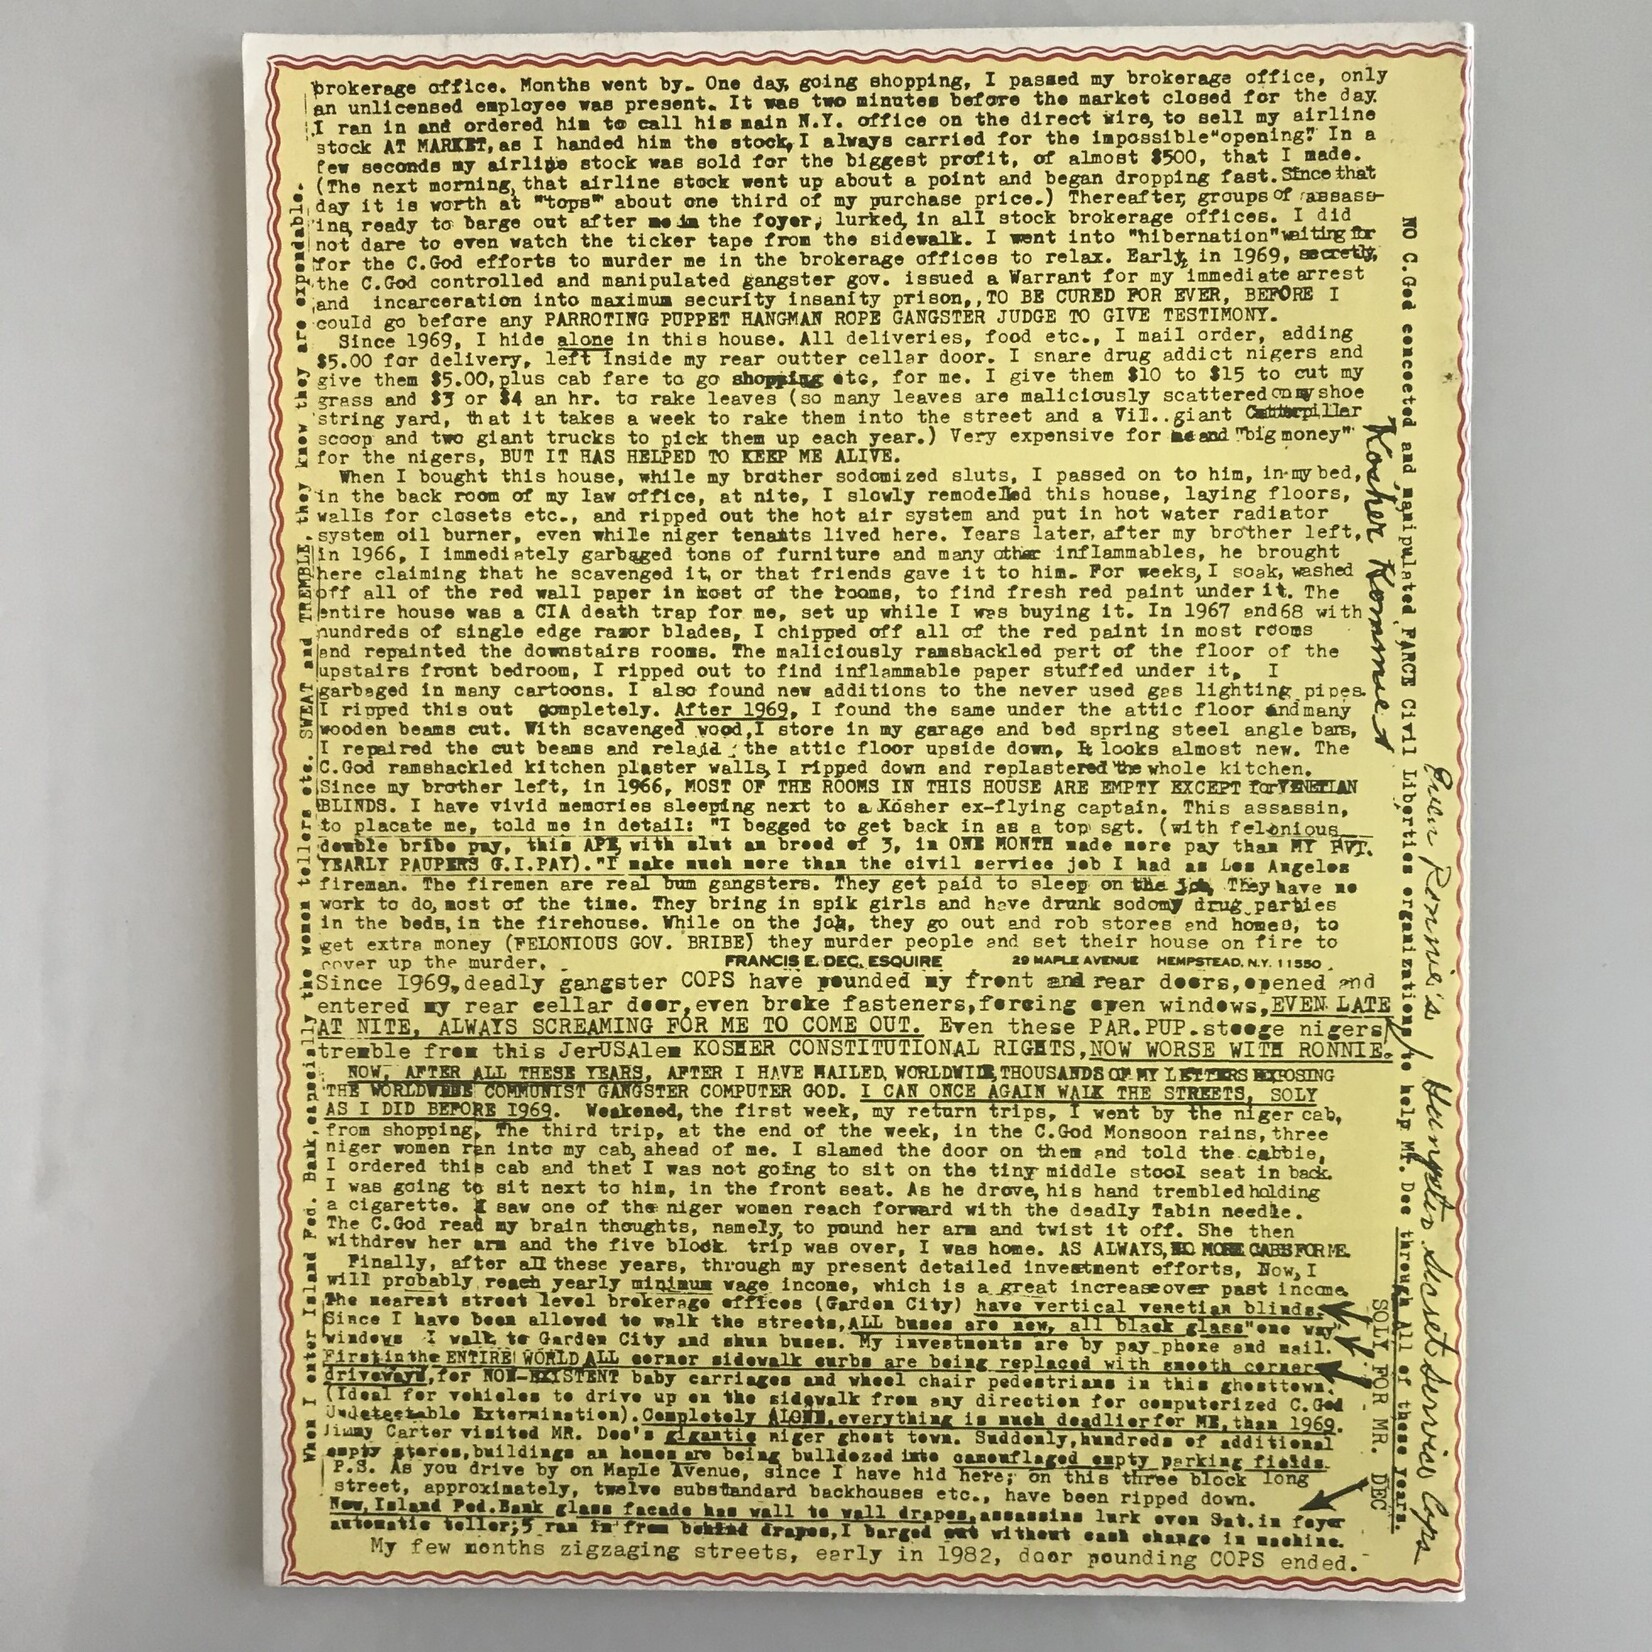 brokerage office. Months went by. One day, going shopping, I passed my brokerage office, only
an unlicensed employee was present. It was two minutes before the market closed for the day.
I ran in and ordered him to call his main N.Y. office on the direct wire, to sell my airline
stock AT MARKET, as I handed him the stock, I always carried for the impossible "opening". In a
few seconds my airline stock was sold for the biggest profit, of almost $500, that I made.
(The next morning, that airline stock went up about a point and began dropping fast. Since that
day it is worth at "tops" about one third of my purchase price.) Thereafter, groups of assass-
ins, ready to barge out after me in the foyer, lurked, in all stock brokerage offices. I did
not dare to even watch the ticker tape from the sidewalk. I went into "hibernation" waiting for
for the C.God efforts to murder me in the brokerage offices to relax. Early, in 1969, secretly,
the C.God controlled and manipulated gangster gov. issued a Warrant for my immediate arrest
and incarceration into maximum security insanity prison,,TO BE CURED FOR EVER, BEFORE I
could go before any PARROTING PUPPET HANGMAN ROPE GANGSTER JUDGE TO GIVE TESTIMONY.
Since 1969, I hide alone in this house. All deliveries, food etc., I mail order, adding
$5.00 for delivery, left inside my rear outter cellar door. I snare drug addict nigers and
give them $5.00, plus cab fare to go shopping etc, for me. I give them $10 to $15 to cut my
grass and $3 or $4 an hr. to rake leaves (so many leaves are maliciously scattered on my shoe
string yard, that it takes a week to rake them into the street and a Vil..giant Catterpillar
scoop and two giant trucks to pick them up each year.) Very expensive for me and "big money"
for the nigers, BUT IT HAS HELPED TO KEEP ME ALIVE.
When I bought this house, while my brother sodomized sluts, I passed on to him, in my bed,
in the back room of my law office, at nite, I slowly remodelled this house, laying floors,
walls for closets etc., and ripped out the hot air system and put in hot water radiator
system oil burner, even while niger tenants lived here. Years later, after my brother left,
in 1966, I immediately garbaged tons of furniture and many other inflammables, he brought
here claiming that he scavenged it, or that friends gave it to him. For weeks, I soak, washed
off all of the red wall paper in most of the rooms, to find fresh red paint under it. The
entire house was a CIA death trap for me, set up while I was buying it. In 1967 and 68 with
hundreds of single edge razor blades, I chipped off all of the red paint in most rooms
and repainted the downstairs rooms. The maliciously ramshackled part of the floor of the
upstairs front bedroom, I ripped out to find inflammable paper stuffed under it, I
garbaged in many cartoons. I also found new additions to the never used gas lighting pipes.
I ripped this out completely. After 1969, I found the same under the attic floor and many
wooden beams cut. With scavenged wood, I store in my garage and bed spring steel angle bars,
I repaired the cut beams and relaid the attic floor upside down, It looks almost new. The
C.God ramshackled kitchen plaster walls, I ripped down and replastered the whole kitchen.
Since my brother left, in 1966, MOST OF THE ROOMS IN THIS HOUSE ARE EMPTY EXCEPT for VENETIAN
BLINDS. I have vivid memories sleeping next to a Kosher ex-flying captain. This assassin,
to placate me, told me in detail: "I begged to get back in as a top sgt. (with felonious
double bribe pay, this APE, with slut an breed of 3, in ONE MONTH made more pay than MY PVT.
YEARLY PAUPERS G.I.PAY). "I make much more than the civil service job I had as Los Angeles
fireman. The firemen are real bum gangsters. They get paid to sleep on the job, They have no
work to do, most of the time. They bring in spik girls and have drunk sodomy drug parties
in the beds, in the firehouse. While on the job, they go out and rob stores and homes, to
get extra money (FELONIOUS GOV. BRIBE) they murder people and set their house on fire to
cover up the murder.
FRANCIS E. DEC, ESQUIRE 29 MAPLE AVENUE HEMPSTEAD, N.Y. 11550
Since 1969, deadly gangster COPS have pounded my front and rear doors, opened and
entered my rear cellar door, even broke fasteners, forcing open windows, EVEN LATE
AT NITE, ALWAYS SCREAMING FOR ME TO COME OUT. Even these PAR.PUP.stooge nigers
tremble from this JerUSAlem KOSHER CONSTITUTIONAL RIGHTS, NOW WORSE WITH RONNIE.
NOW, AFTER ALL THESE YEARS, AFTER I HAVE MAILED, WORLDWIDE, THOUSANDS OF MY LETTERS EXPOSING
THE WORLDWIDE COMMUNIST GANGSTER COMPUTER GOD. I CAN ONCE AGAIN WALK THE STREETS, SOLY
AS I DID BEFORE 1969. Weakened, the first week, my return trips, I went by the niger cab,
from shopping. The third trip, at the end of the week, in the C.God Monsoon rains, three
niger women ran into my cab, ahead of me. I slamed the door on them and told the cabbie,
I ordered this cab and that I was not going to sit on the tiny middle stool seat in back.
I was going to sit next to him, in the front seat. As he drove, his hand trembled holding
a cigarette. I saw one of the niger women reach forward with the deadly Tabin needle.
The C.God read my brain thoughts, namely, to pound her arm and twist it off. She then
withdrew her arm and the five block trip was over, I was home. AS ALWAYS, NO MORE CABS FOR ME.
Finally, after all these years, through my present detailed investment efforts, Now, I
will probably reach yearly minimum wage income, which is a great increase over past income.
The nearest street level brokerage offices (Garden City) have vertical venetian blinds.
Since I have been allowed to walk the streets, ALL buses are new, all black glass "one way"
windows I walk to Garden City and shun buses. My investments are by pay phone and mail.
First in the ENTIRE WORLD ALL corner sidewalk curbs are being replaced with smooth corner
driveways, for NON-EXYSTENT baby carriages and wheel chair pedestrians in this ghosttown.
(Ideal for vehicles to drive up on the sidewalk from any direction for computerized C.God
Undetectable Extermination). Completely ALONE, everything is much deadlier for ME, than 1969.
Jimmy Carter visited MR. Dec's gigantic niger ghost town. Suddenly, hundreds of additional
empty stores, buildings an homes are being bulldozed into camouflaged empty parking fields.
P.S. As you drive by on Maple Avenue, since I have hid here; on this three block long
street, approximately, twelve substandard backhouses etc., have been ripped down.
New, Island Fed.Bank glass facade has wall to wall drapes, assassins lurk even Sat. in foyer
automatic teller; 5 ran in from behind drapes, I barged out without cash change in machine.
My few months zigzaging streets, early in 1982, door pounding COPS ended.
When I enter Island Fed. Bank, especially the women tellers etc. SWEAT and TREMBLE, they know they are expendable.
NO C.God concocted and manipulated FARCE Civil Liberties organizations to help Mr. Dec through All of these years.
Kosher Konnies
SOLY FOR MR. DEC
Even Ronnie's Humpster Secret Service Cops